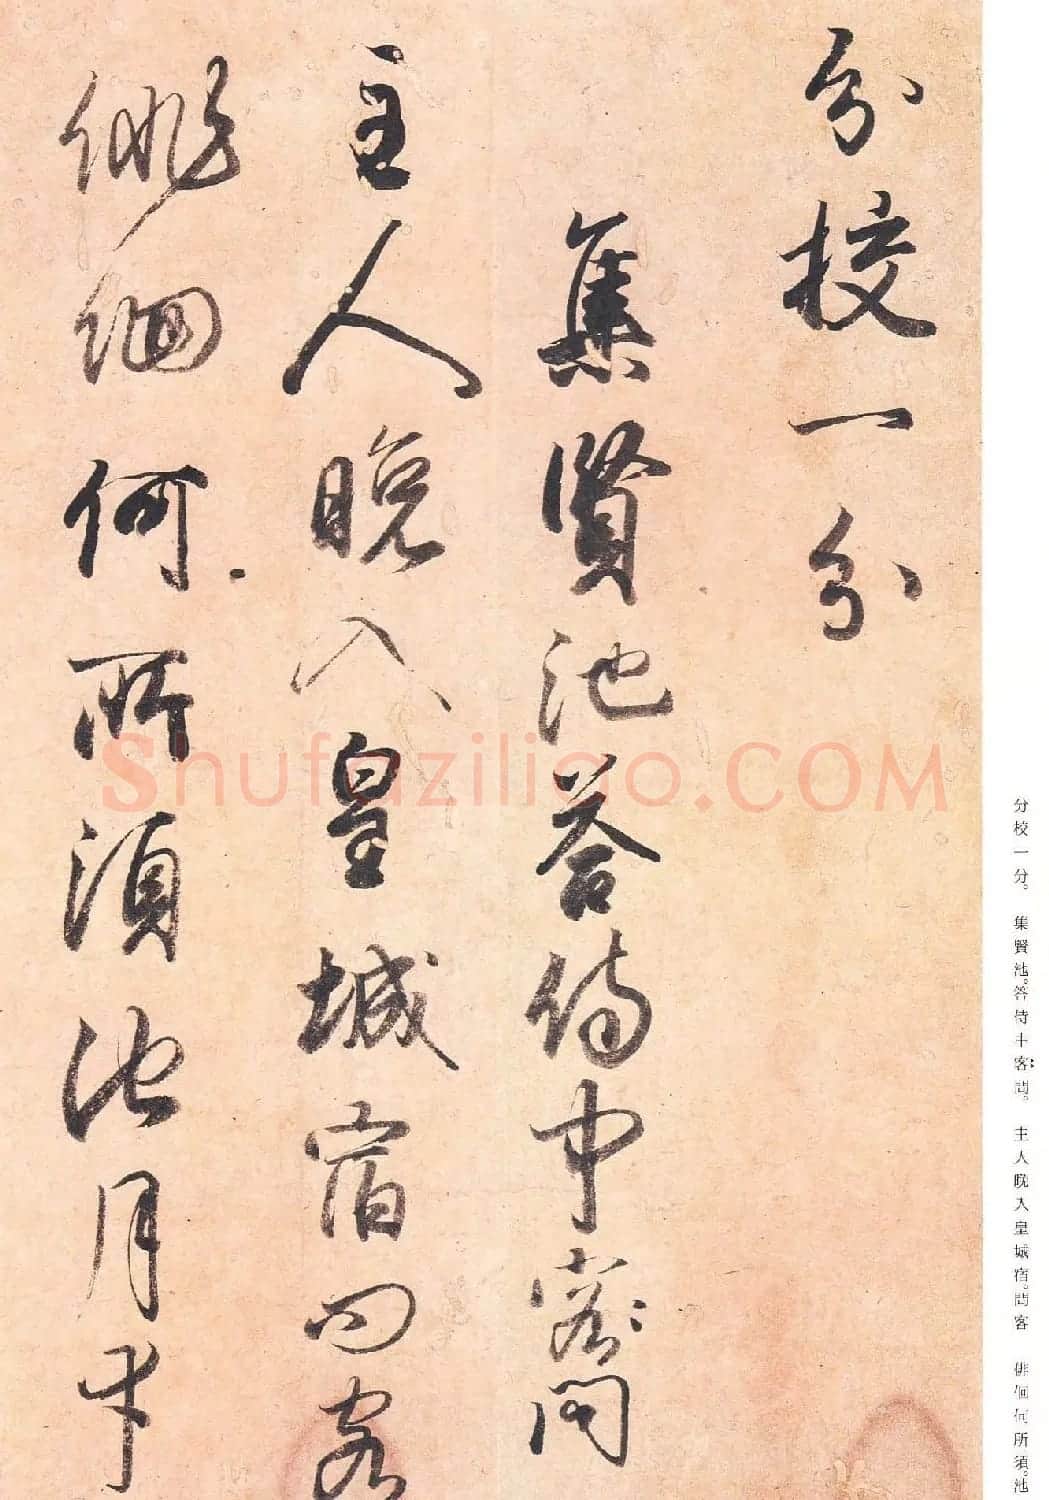 分校一分
集賢池答侍中客問
主人晚入皇城宿問客
俳佪何所須池月才
分校一分。 集賢池。答侍中客問。 主人晚入皇城宿。問客 俳佪何所須。池
Shufaziligo.COM